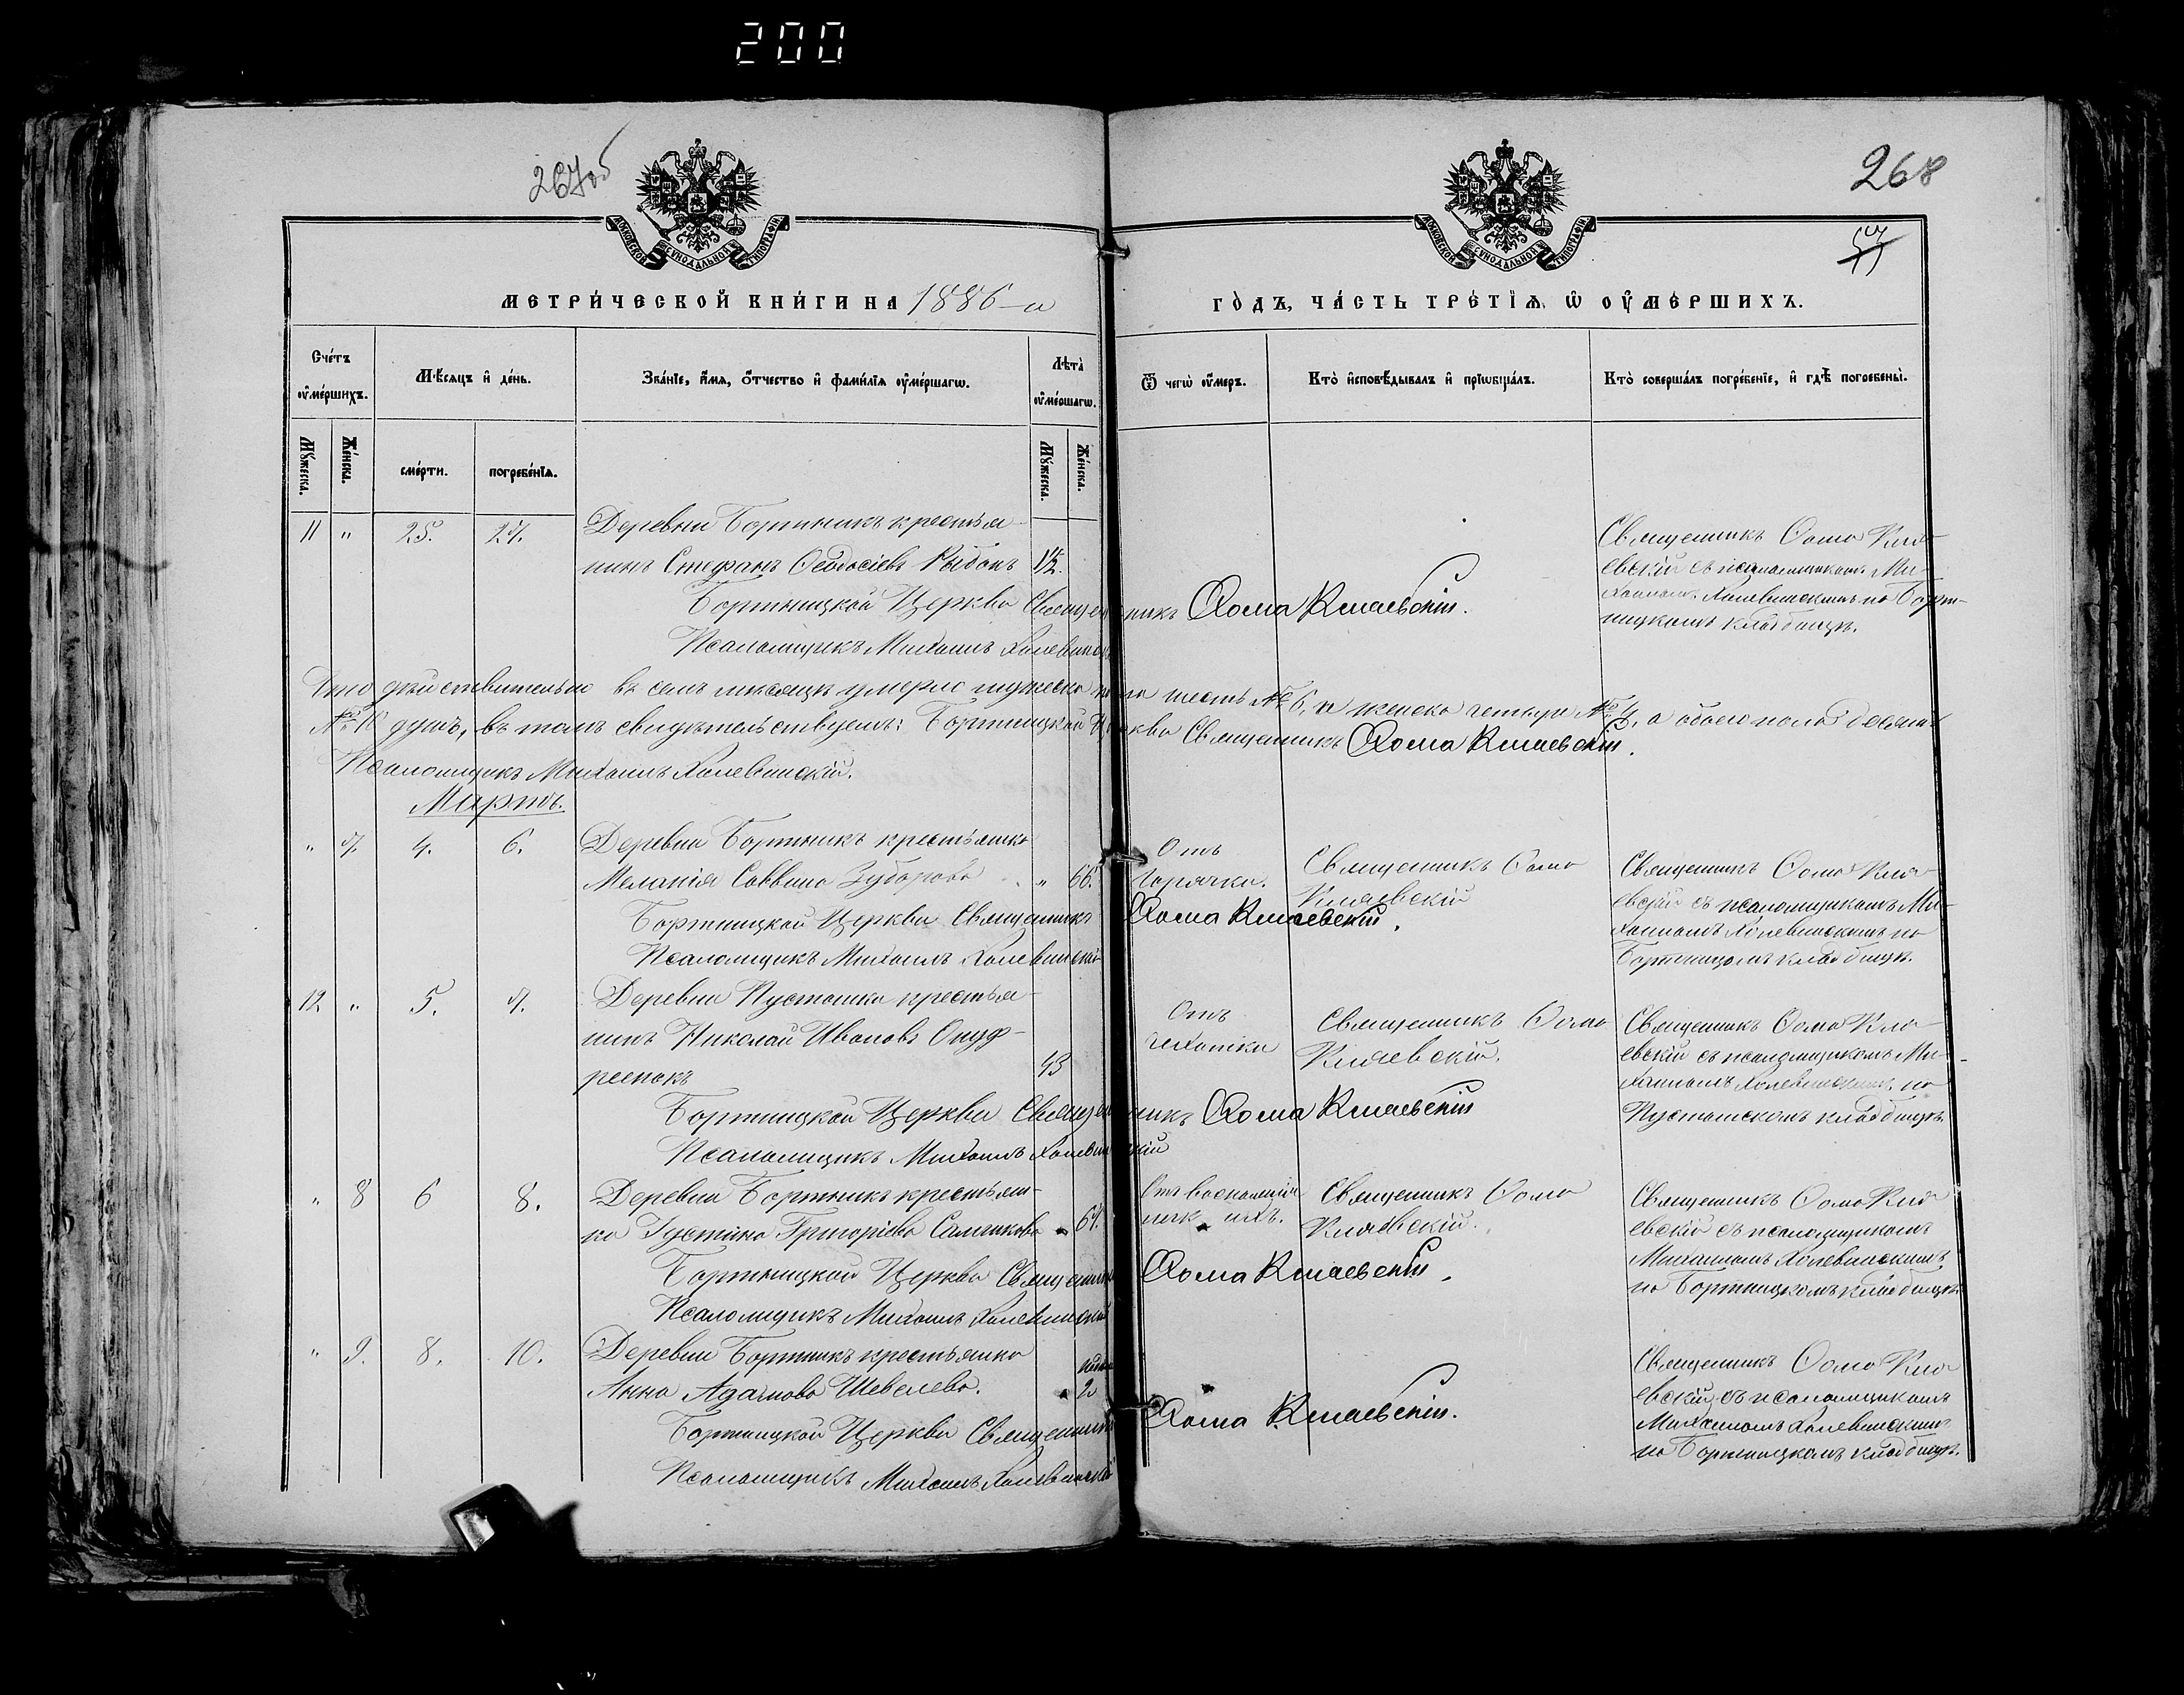 200
267об
268
МОСКОВСКОЙ СѴНОДАЛЬНОЙ ТИПОГРАФІИ
МОСКОВСКОЙ СѴНОДАЛЬНОЙ ТИПОГРАФІИ
МЕТРИ́ЧЕСКОЙ КНИ́ГИ НА 1886-й
ГО́ДЪ, ЧА́СТЬ ТРЕ́ТІѦ, Ѡ ОУ҆МЕ́РШИХЪ.
Сче́тъ оу҆ме́ршихъ.
Мѣ́сяцъ и҆ де́нь.
Зва́нїе, и҆́мя, ѻ҆́тчество и҆ фами́лїя оу҆ме́ршагѡ.
Лѣта̀ оу҆ме́ршагѡ.
Ѿ чегѡ̀ оу҆́меръ.
Кто̀ и҆сповѣ́дывалъ и҆ прїѡбща́лъ.
Кто̀ соверша́лъ погребе́нїе, и҆ гдѣ̀ погребены̀.
Му́жеска.
Же́нска.
сме́рти.
погребе́нїя.
Му́жеска.
Же́нска.
11 " 25. 27.
Деревни Бортникъ крестья-
нинъ Стефанъ Ѳеодосіевъ 1/2.
Бортницкой Церкви Священникъ Ѳома Княевскій.
Псаломщикъ Михаилъ Холевинскій
Священникъ Ѳома Кня-
евскій съ псаломщикомъ Ми-
хаиломъ Холевинскимъ на Борт-
ницкомъ кладбищѣ.
Что дѣйствительно въ семъ мѣсяцѣ умерло мужеска пола шесть № 6, и женска четыре № 4, а обоего пола десять
№ 10 душъ, въ томъ свидѣтельствуемъ: Бортницкой Церкви Священникъ Ѳома Княевскій.
Псаломщикъ Михаилъ Холевинскій.
Мартъ.
" 7. 4. 6.
Деревни Бортникъ крестьянка
Меланія Саввина Зубарова " 66.
Отъ
горячки.
Священникъ Ѳома
Княевскій
Священникъ Ѳома Кня-
евскій съ псаломщикомъ Ми-
хаиломъ Холевинскимъ на
Бортницкомъ кладбищѣ.
Бортницкой Церкви Священникъ Ѳома Княевскій.
Псаломщикъ Михаилъ Холевинскій
12 " 5. 7.
Деревни Пусташки крестья-
нинъ Николай Ивановъ Онуф-
реенокъ 43
Отъ
чахотки
Священникъ Ѳома
Княевскій.
Священникъ Ѳома Кня-
евскій съ псаломщикомъ Ми-
хаиломъ Холевинскимъ на
Пусташскомъ кладбищѣ.
Бортницкой Церкви Священникъ Ѳома Княевскій
Псаломщикъ Михаилъ Холевинскій
" 8 6 8.
Деревни Бортникъ крестьян-
ка Густина Григоріева 67.
Отъ воспаленія
Священникъ Ѳома
Княевскій.
Священникъ Ѳома Кня-
евскій съ псаломщикомъ
Михаиломъ Холевинскимъ
на Бортницкомъ кладбищѣ.
Бортницкой Церкви Священникъ Ѳома Княевскій.
Псаломщикъ Михаилъ Холевинскій
" 9. 8. 10.
Деревни Бортникъ крестьянка
Анна Адамова Шевелева. 2
Священникъ Ѳома Кня-
евскій съ псаломщикомъ
Михаиломъ Холевинскимъ
на Бортницкомъ кладбищѣ.
Бортницкой Церкви Священникъ Ѳома Княевскій.
Псаломщикъ Михаилъ Холевинскій